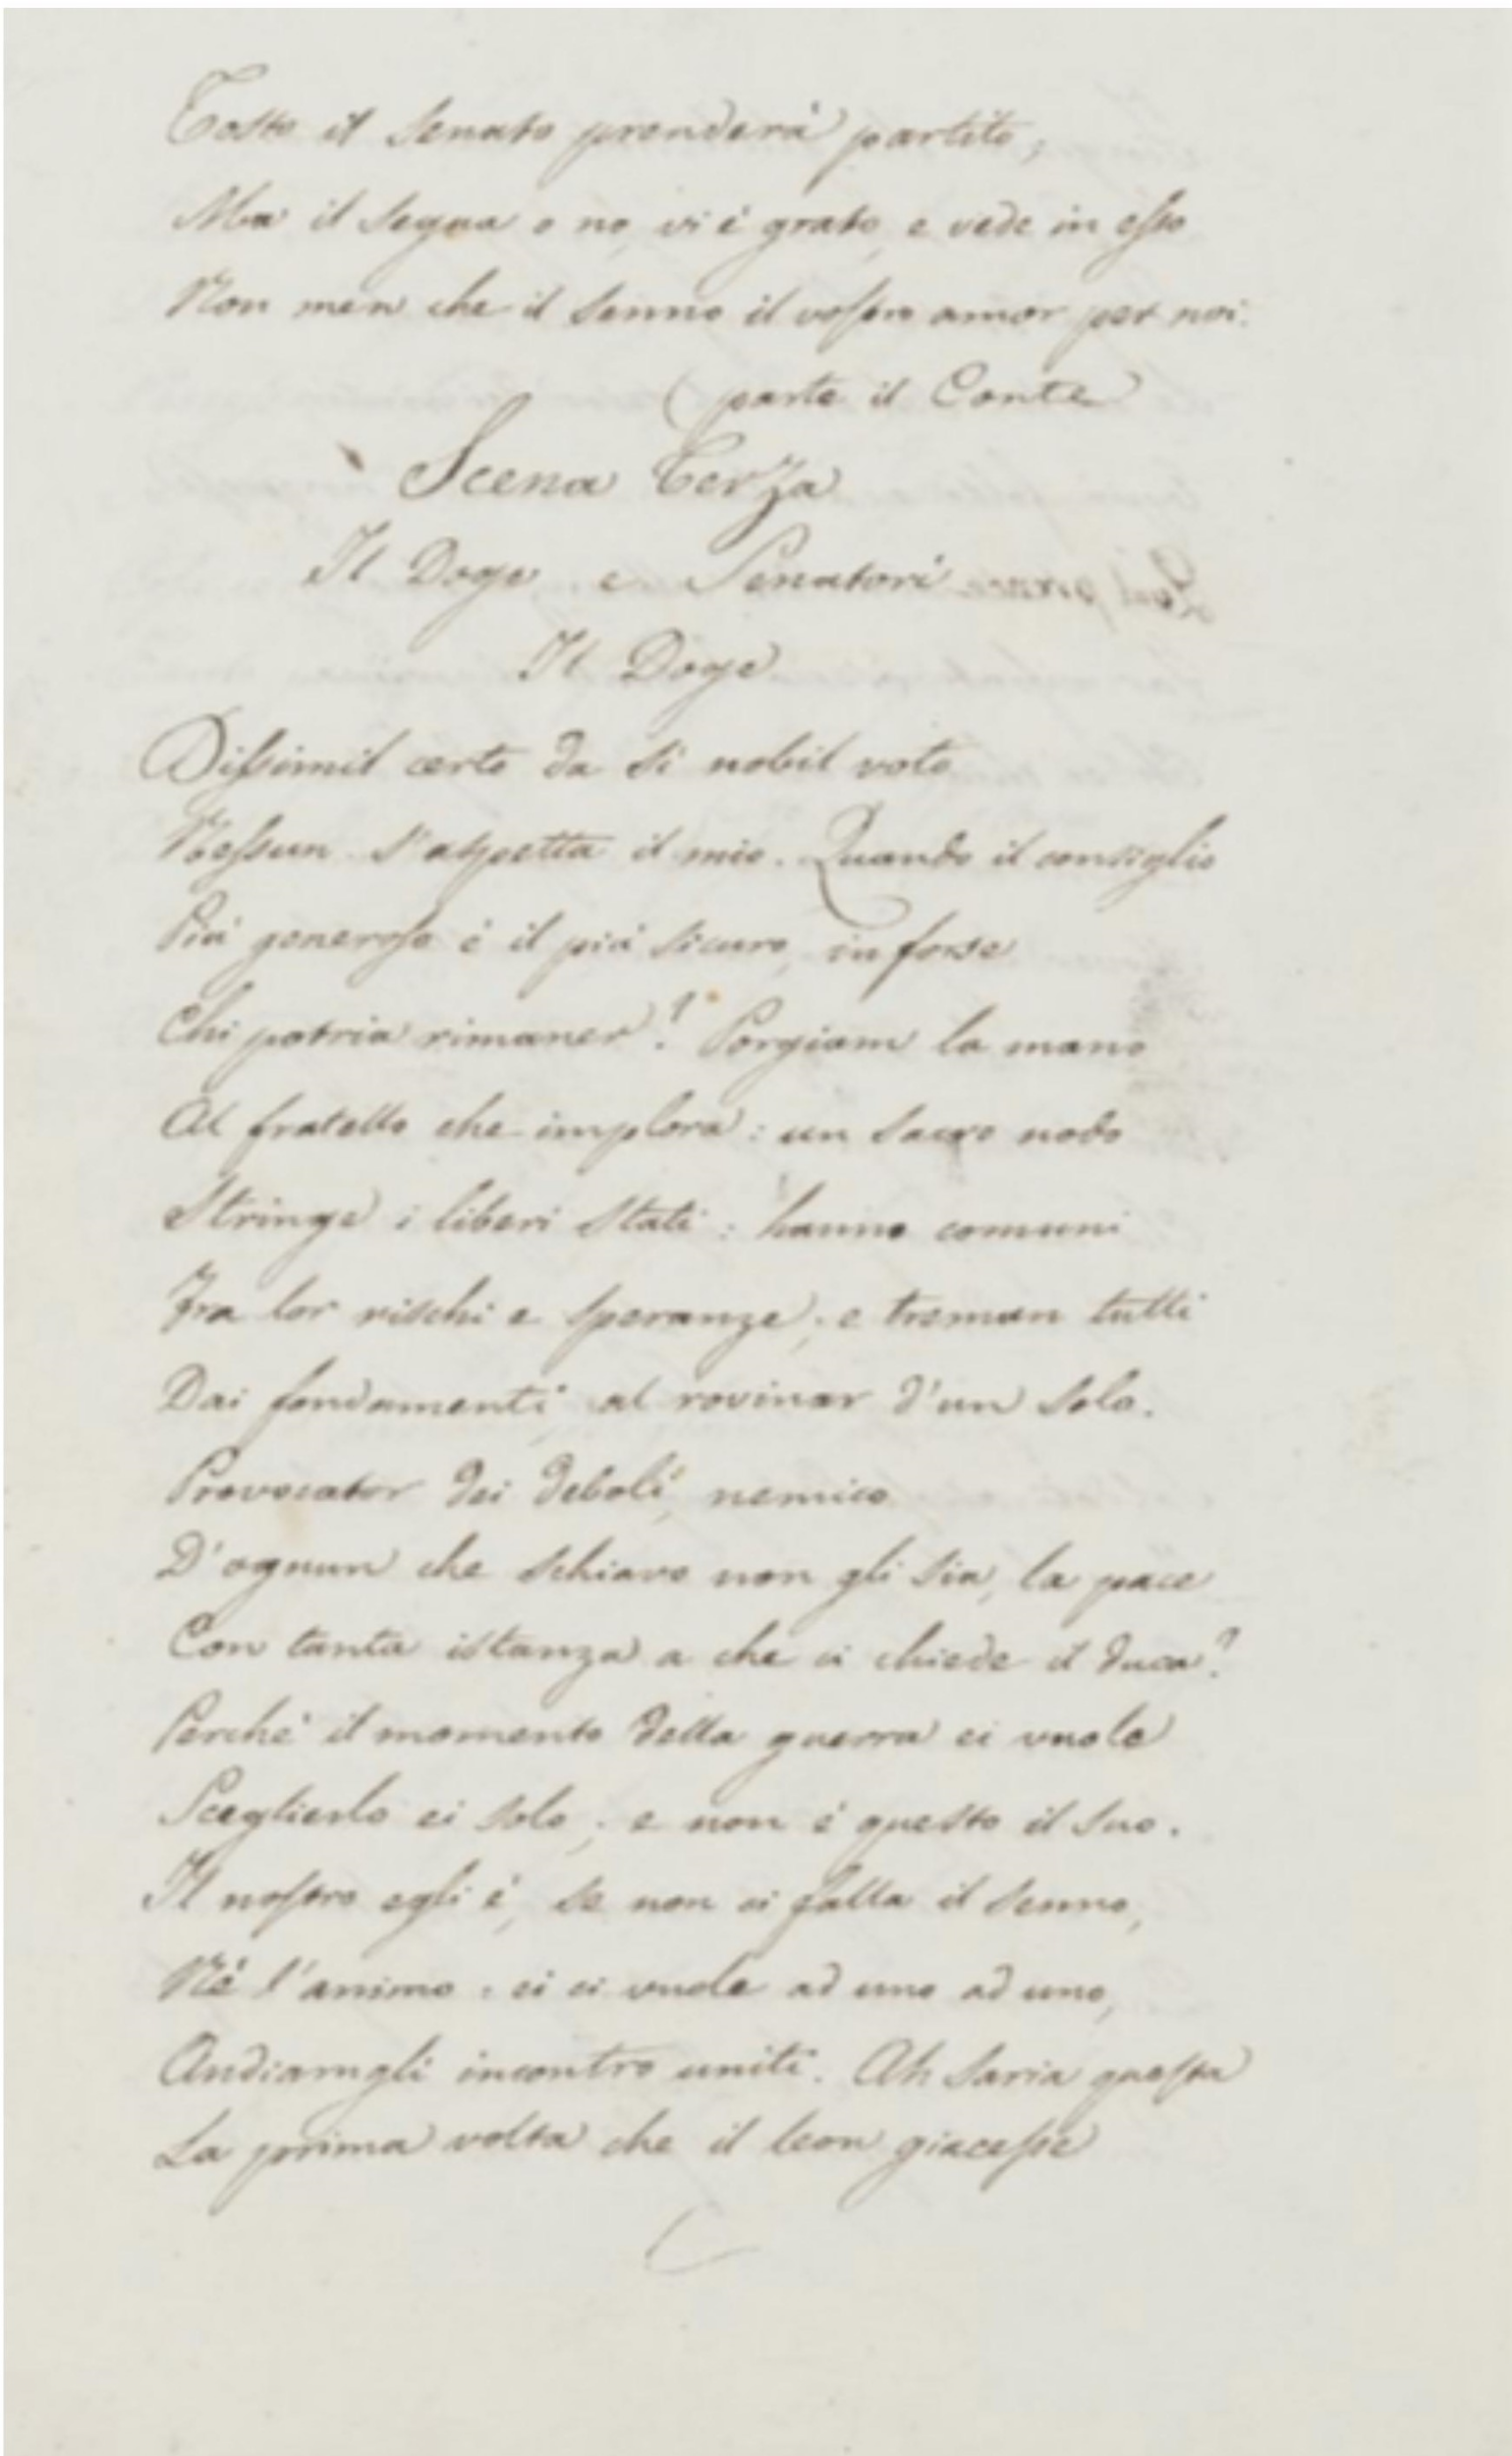 Tosto il Senato prenderà partito;
Ma il segua o no, vi è grato, e vede in esso
Non men che il senno il vostro amor per noi.
(parte il Conte)
Scena Terza
Il Doge e Senatori
Il Doge
Dissimil certo da sì nobil voto
Nessun s'aspetta il mio. Quando il consiglio
Più generoso è il più sicuro, in forse
Chi potria rimaner? Porgiam la mano
Al fratello che implora: un sacro nodo
Stringe i liberi Stati: hanno comuni
Fra lor rischi e speranze; e treman tutti
Dai fondamenti, al rovinar d'un solo.
Provocator dei deboli, nemico
D'ognun che schiavo non gli sia, la pace
Con tanta istanza a che ci chiede il duca?
Perché il momento della guerra ei vuole
Sceglierlo ei solo; e non è questo il suo.
Il nostro egli è, se non ci falla il senno,
Nè l'animo: ei ci vuole ad uno ad uno,
Andiamgli incontro uniti. Ah saria questa
La prima volta che il leon giacesse